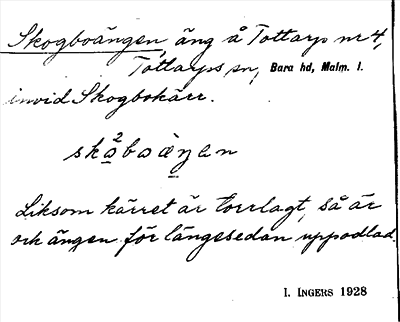 Skogboängen, äng å Tottarp nr 4,
Tottarps sn, Bara hd, Malm. l.
invid Skogbokärr.
Liksom kärret är torrlagt, så är
ock ängen för längesedan uppodlad.
I. INGERS 1928